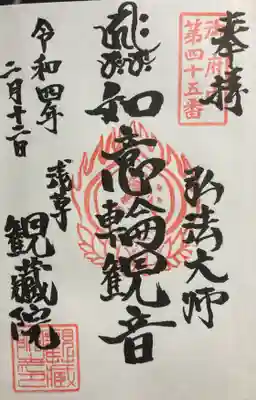 奉拝
御府内
第四十五番
弘法大師
如意輪観音
浅草
観蔵院
令和四年
二月十二日